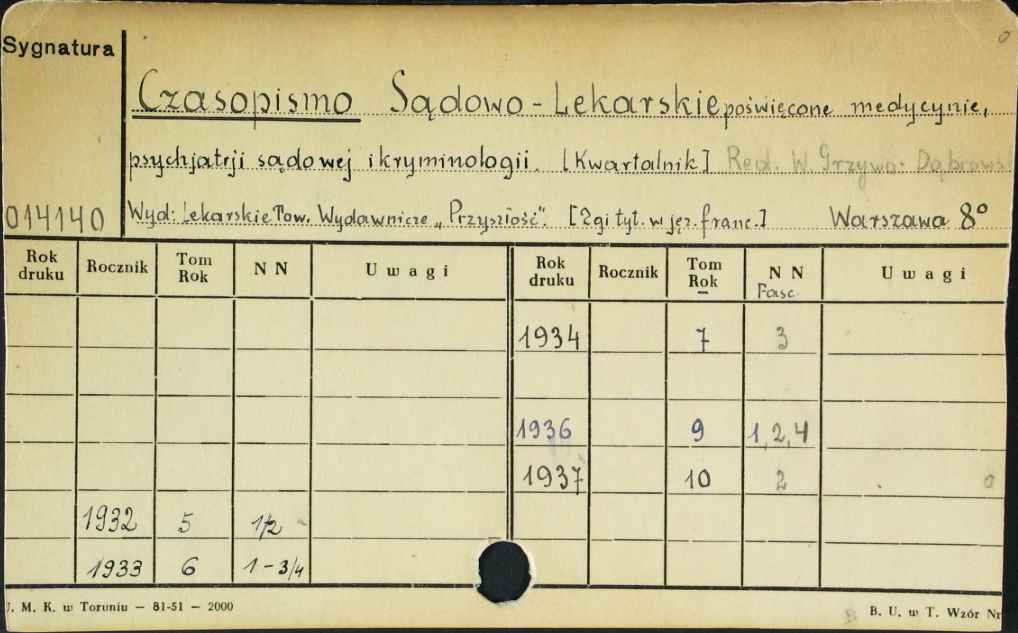 Sygnatura
Czasopismo Sądowo-Lekarskie poświęcone medycynie,
psychjatrji sądowej i kryminologii. [Kwartalnik] Red. W. Grzywo-Dąbrows
014140 Wyd: Lekarskie Tow. Wydawnicze „Przyszłość". [2gi tyt. w jęz. franc.] Warszawa 8°
Rok druku Rocznik Tom Rok N N Uwagi Rok druku Rocznik Tom Rok N N Fasc. Uwagi
1934 7 3
1936 9 1, 2, 4
1937 10 2
1932 5 1/2
1933 6 1-3/4
U. M. K. w Toruniu — 81-51 — 2000 B. U. w T. Wzór Nr